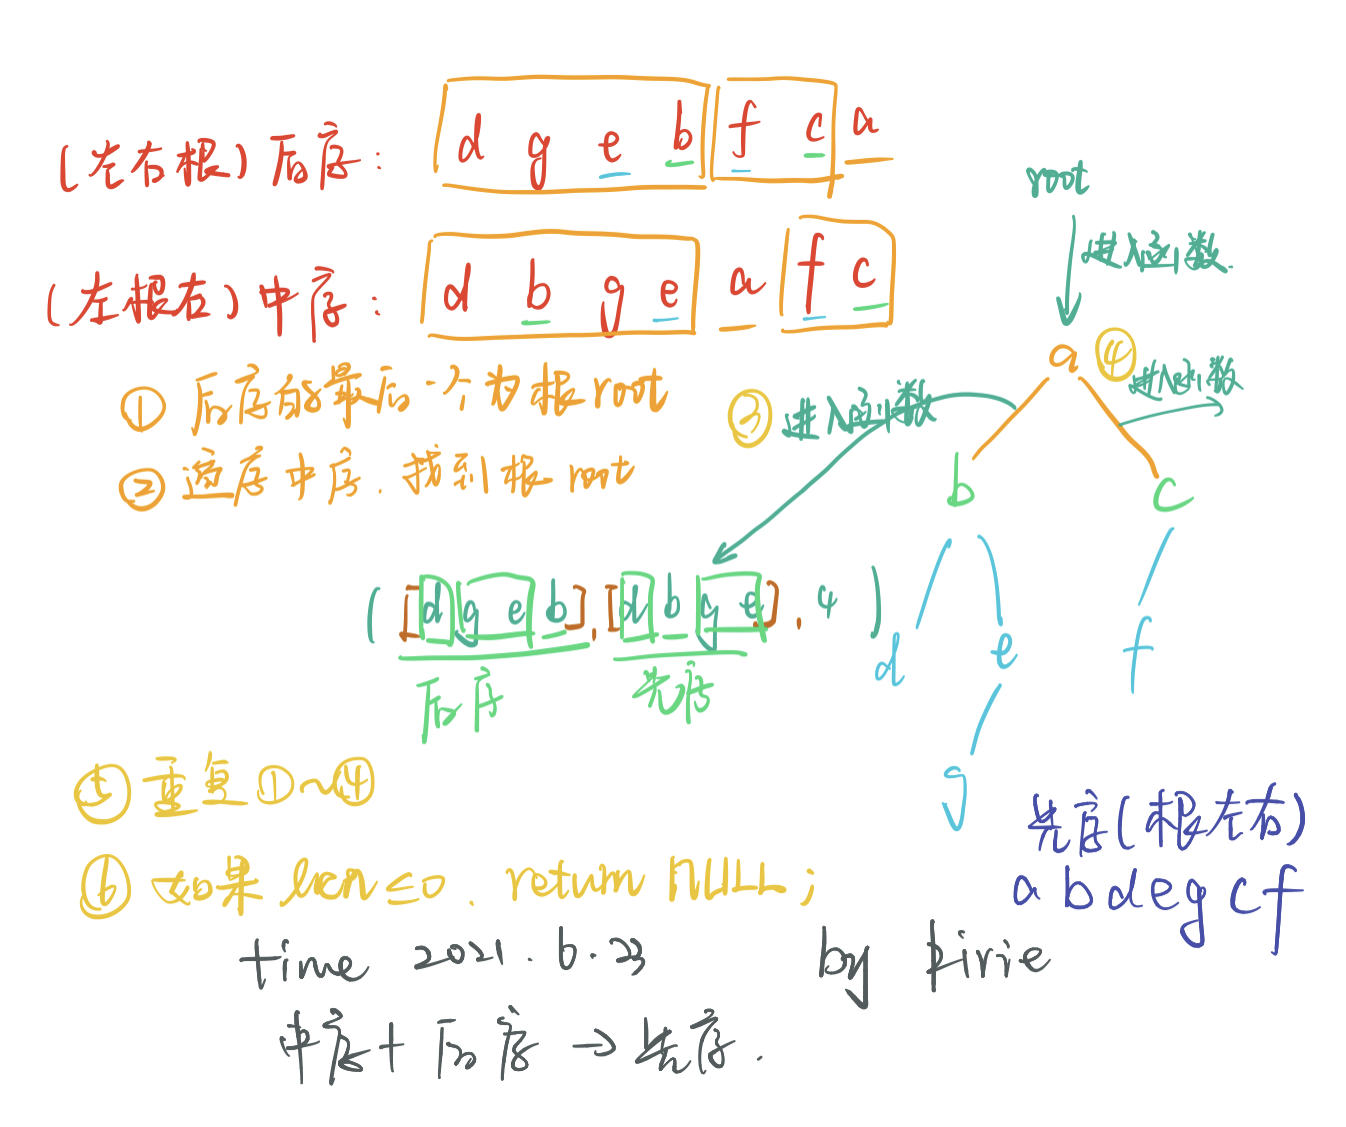 (左右根)后序: d g e b f c a
(左根右)中序: d b g e a f c
① 后序的最后一个为根root
② 遍序中序.找到根root
root
进入函数.
a
④ 进入函数
③ 进入函数
b c
([d g e b],[d b g e],4)
后序 先序
d e f
g
⑤ 重复①~④
⑥ 如果 len≤0. return NULL;
先序(根左右)
a b d e g c f
time 2021.6.23 by kirie
中序+后序→先序.